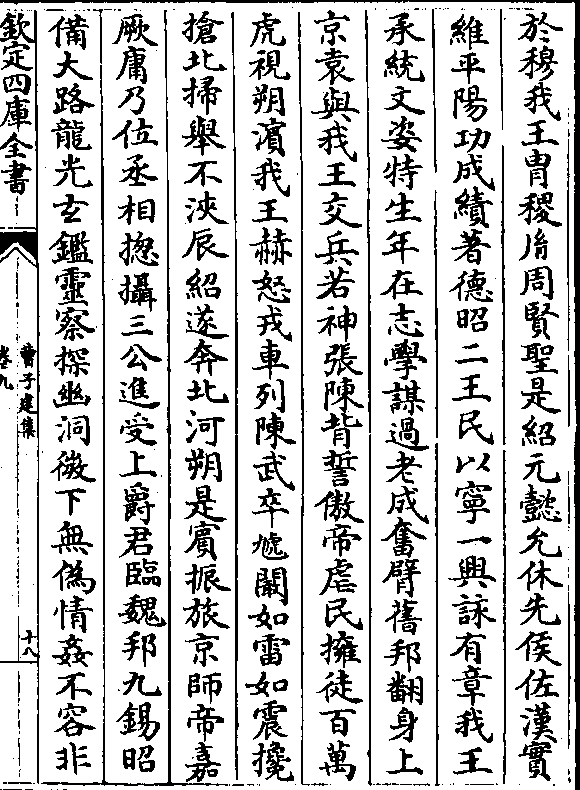 於穆我王胄稷胤周賢聖是紹元懿允休先侯佐漢實
維平陽功成績著德昭二王民以寧一興詠有章我王
承統文姿特生年在志學謀過老成奮臂舊邦翻身上
京袁與我王交兵若神張陳背誓傲帝虐民擁徒百萬
虎視朔濱我王赫怒戎車列陳武卒虓闞如雷如震攙
搶北掃舉不浹辰紹遂奔北河朔是賔振旅京師帝嘉
厥庸乃位丞相揔攝三公進受上爵君臨魏邦九錫昭
備大路龍光𤣥鑑靈察探幽洞微下無偽情姦不容非
欽定四庫全書
曹子建集
卷九
十八